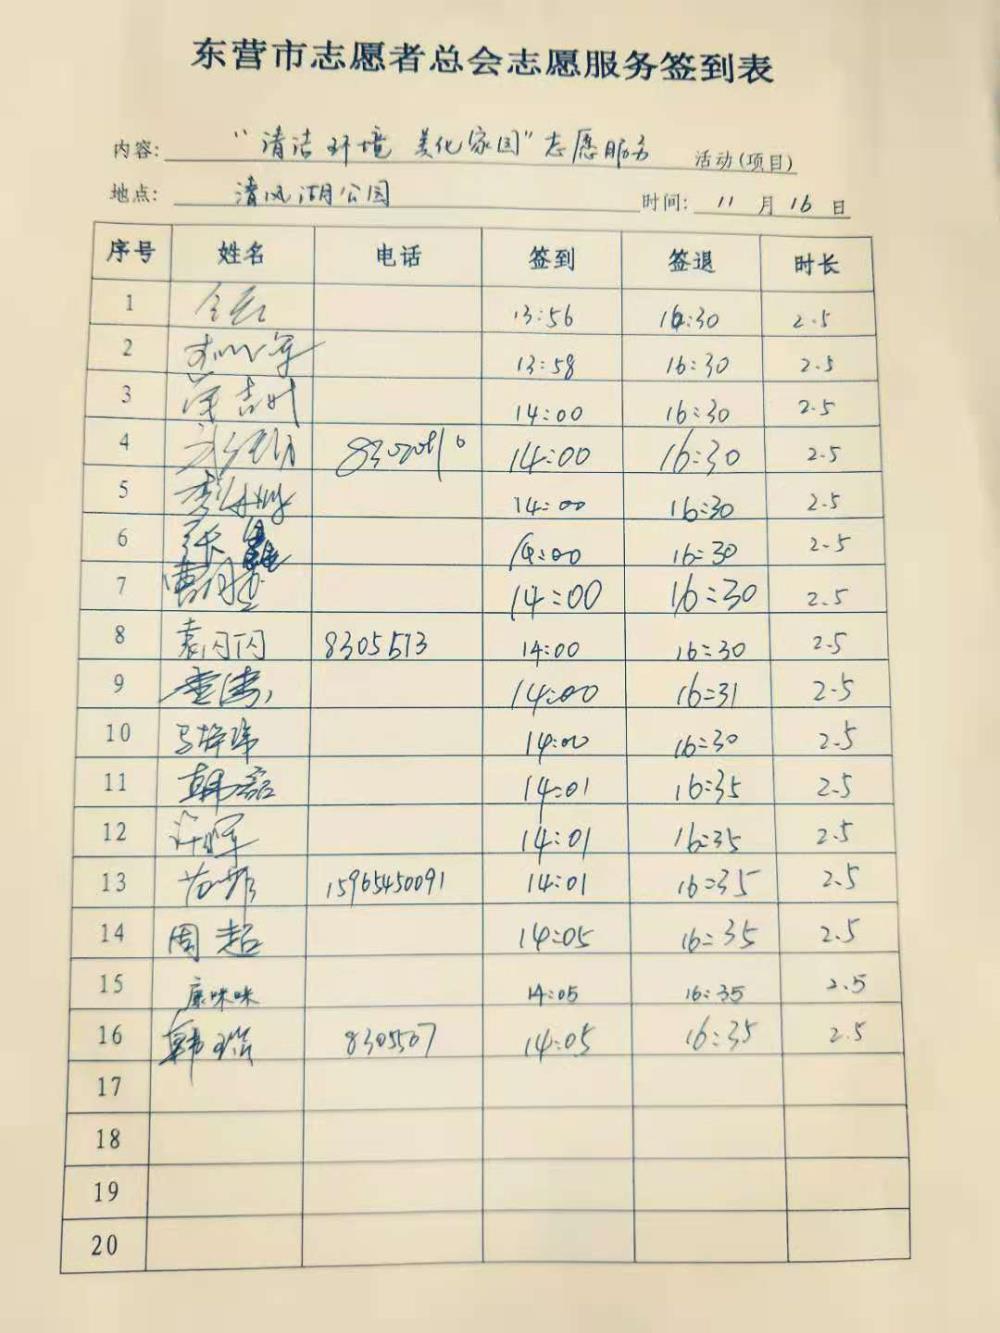 东营市志愿者总会志愿服务签到表
内容: “清洁环境 美化家园”志愿服务 活动(项目)
地点: 清风湖公园 时间: 11 月 16 日
序号 姓名 电话 签到 签退 时长
1 13:56 16:30 2.5
2 13:58 16:30 2.5
3 14:00 16:30 2.5
4 14:00 16:30 2.5
5 14:00 16:30 2.5
6 张 14:00 16:30 2.5
7 14:00 16:30 2.5
8 袁闪闪 8305513 14:00 16:30 2.5
9 14:00 16:31 2.5
10 14:00 16:30 2.5
11 韩磊 14:01 16:35 2.5
12 14:01 16:35 2.5
13 15965450091 14:01 16:35 2.5
14 周超 14:05 16:35 2.5
15 康咪咪 14:05 16:35 2.5
16 韩瑞 8305507 14:05 16:35 2.5
17
18
19
20